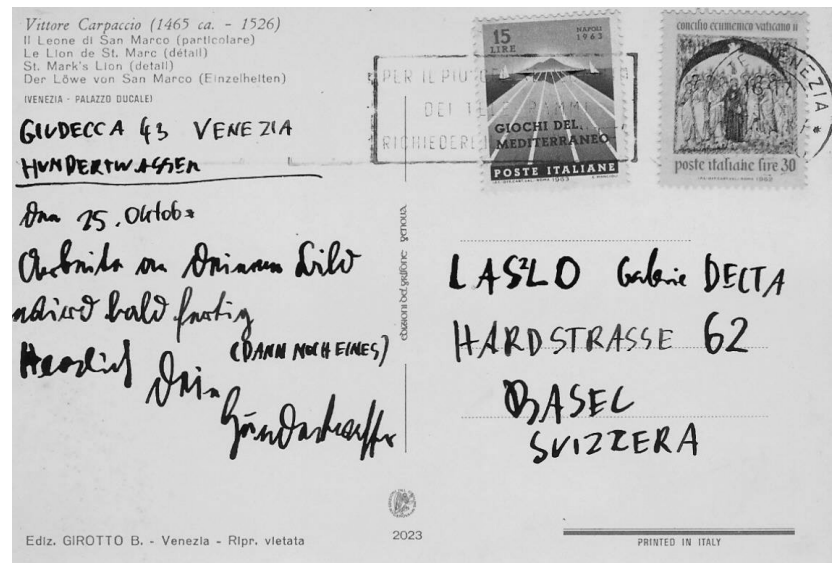 Vittore Carpaccio (1465 ca. - 1526)
Il Leone di San Marco (particolare)
Le Lion de St. Marc (détail)
St. Mark's Lion (detail)
Der Löwe von San Marco (Einzelheiten)
(VENEZIA - PALAZZO DUCALE)
GIUDECCA 43 VENEZIA
HUNDERTWASSER
Den 25. Oktob.
Arbeite an Deinem Bild
wird bald fertig
(DANN NOCH EINES)
Herzlich Dein
Hundertwasser
Ediz. GIROTTO B. - Venezia - Ripr. vietata
2023
edizioni del grifone genova
15
LIRE
NAPOLI
1963
GIOCHI DEL
MEDITERRANEO
POSTE ITALIANE
concilio ecumenico vaticano II
poste italiane lire 30
PER IL PIU'
DEI
RICHIEDERE
VENEZIA
LASZLO Galerie DELTA
HARDSTRASSE 62
BASEL
SVIZZERA
PRINTED IN ITALY